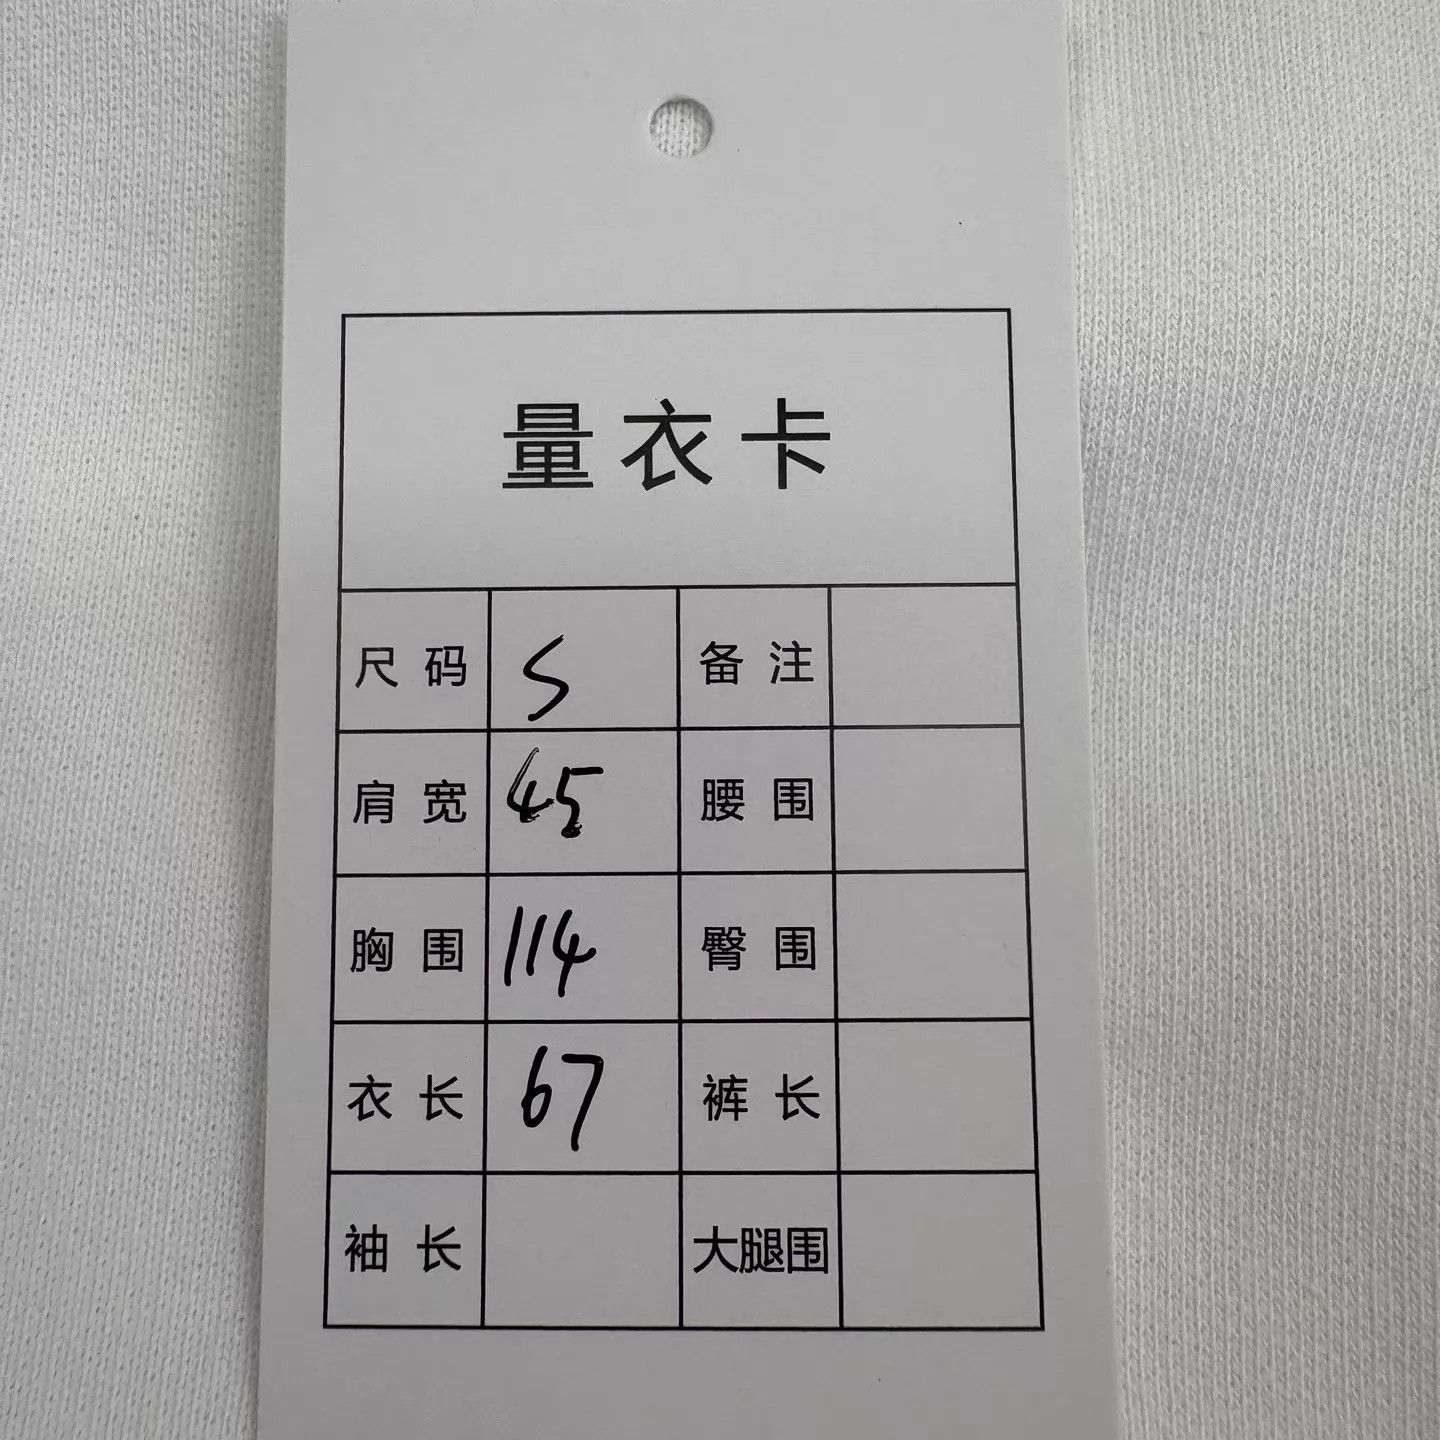 量衣卡
尺码 S 备注
肩宽 45 腰围
胸围 114 臀围
衣长 67 裤长
袖长 大腿围